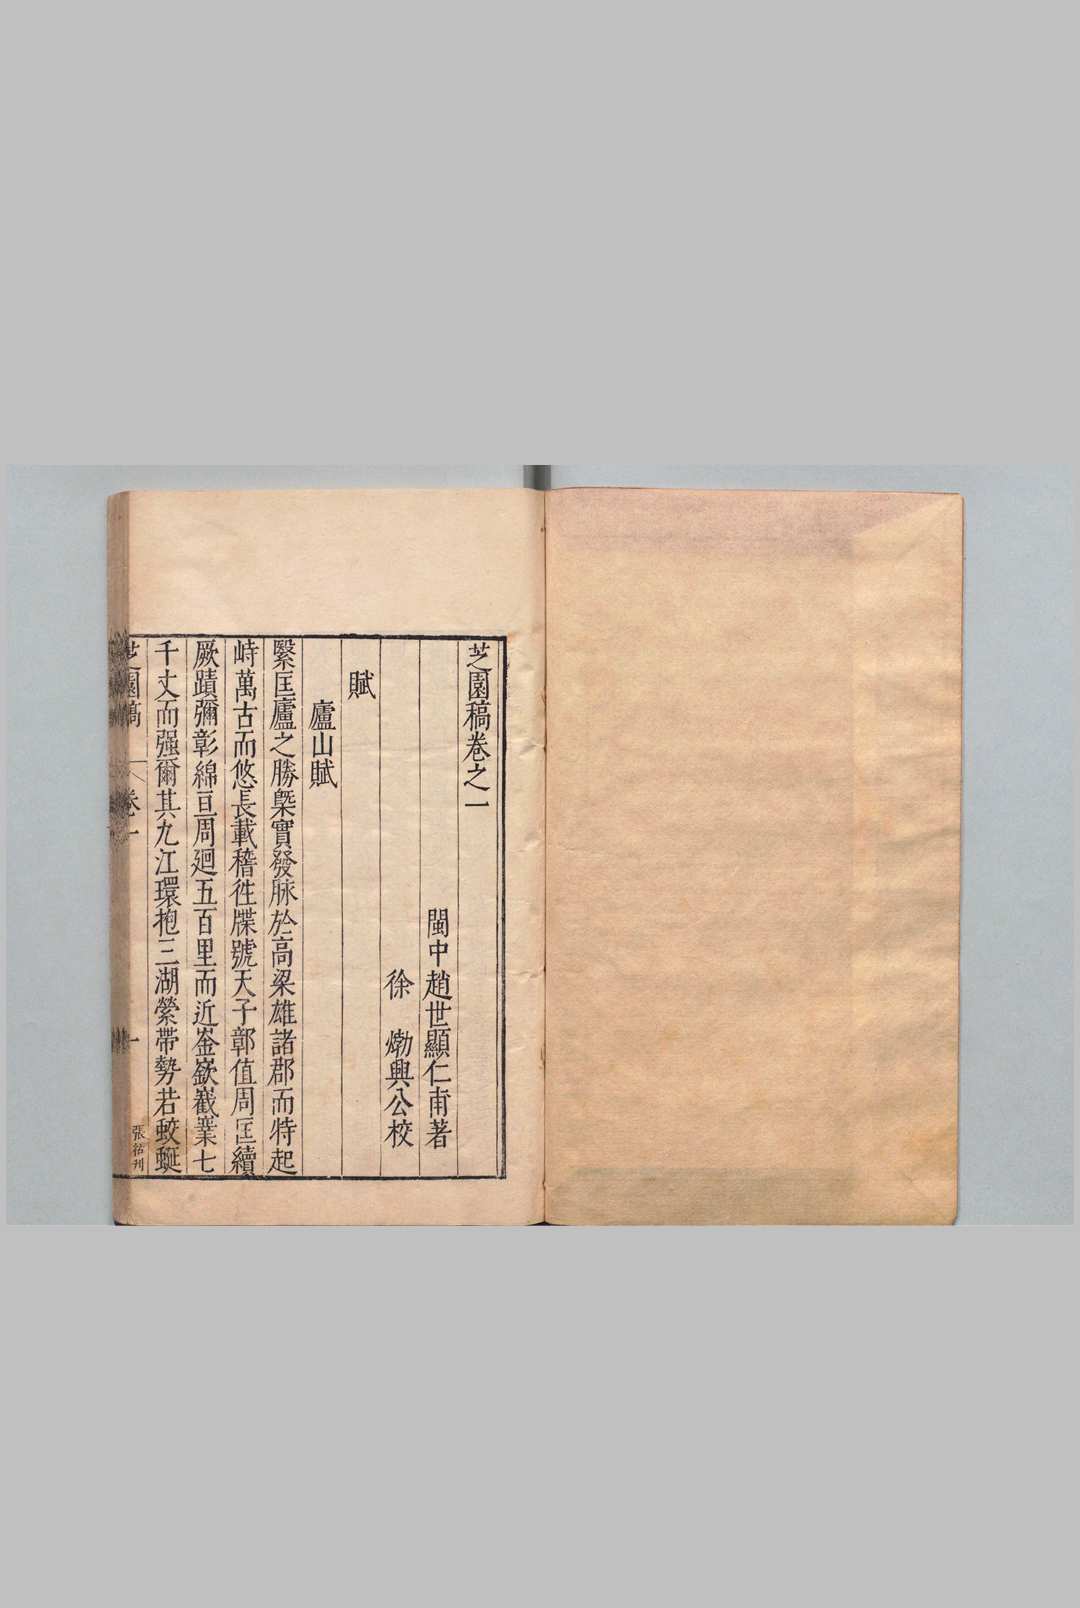 芝園稿卷之一
閩中趙世顯仁甫著
徐　㶿興公校
賦
廬山賦
繄匡廬之勝槩實發脉於高梁雄諸郡而特起
峙萬古而悠長載稽徃牒號天子鄣值周匡續
厥蹟彌彰綿亘周廻五百里而近崟嶔嶻嶪七
千丈而强爾其九江環抱三湖縈帶勢若蛟蜒
芝園稿　卷一　一　張㓉刊